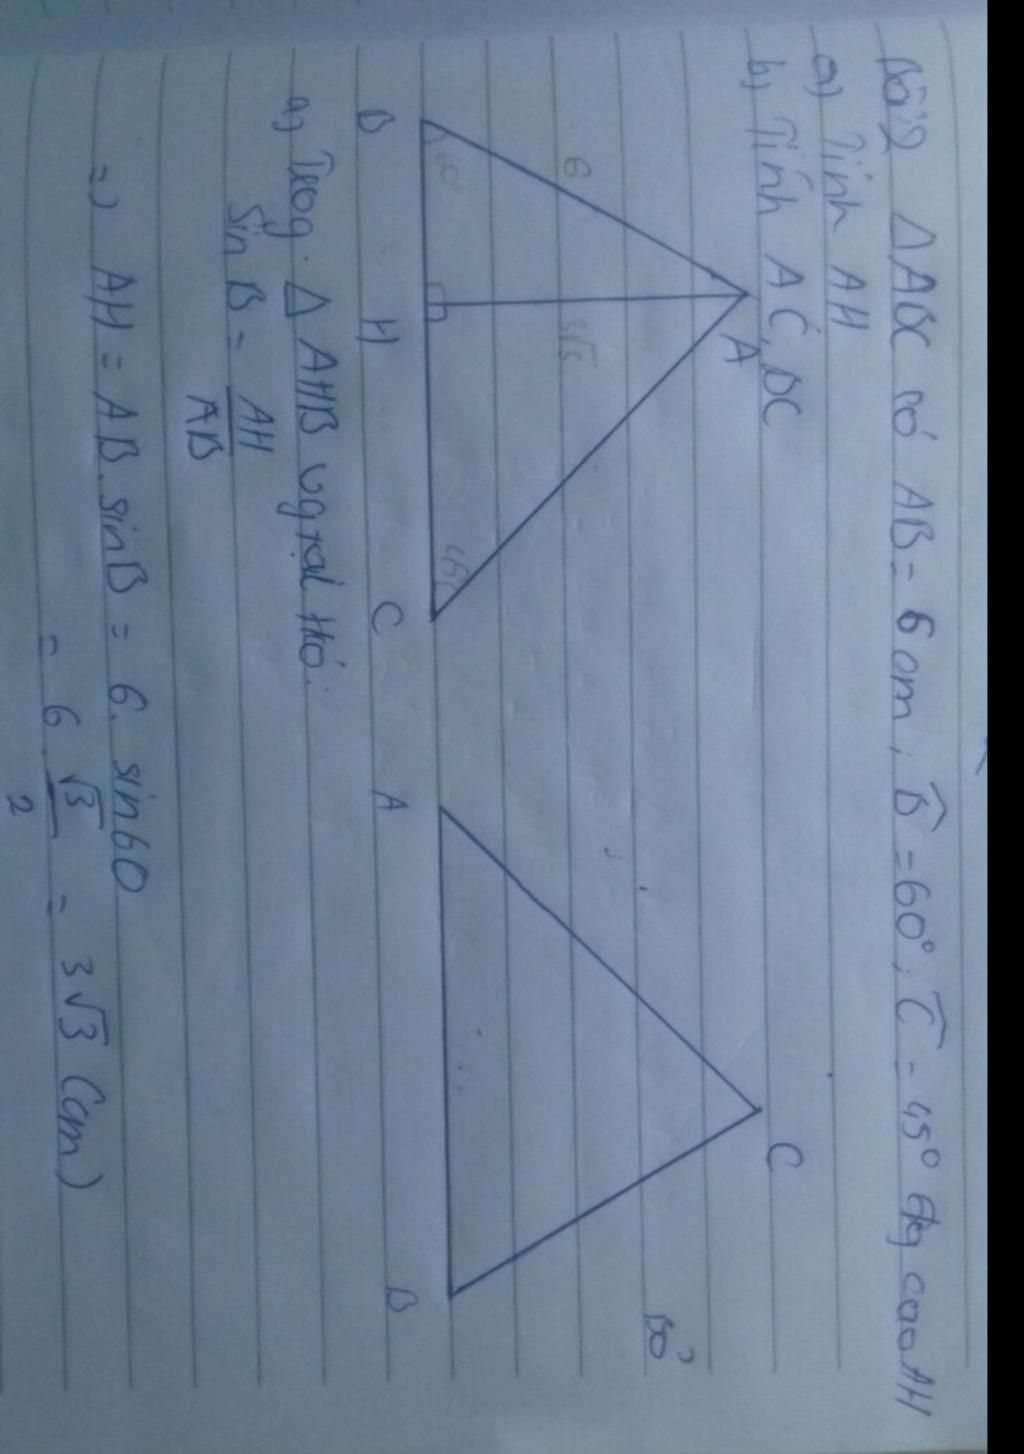 Bài 2 ΔABC có AB = 6 cm, B̂ = 60°, Ĉ = 45° đg cao AH
a) Tính AH
b) Tính AC, BC
A
6
60°
45°
B H C
C
A B
Bỏ
a) Trog Δ AHB vg tại H có:
sin B = AH/AB
=) AH = AB. sinB = 6. sin60
= 6 √3/2 = 3√3 (cm)